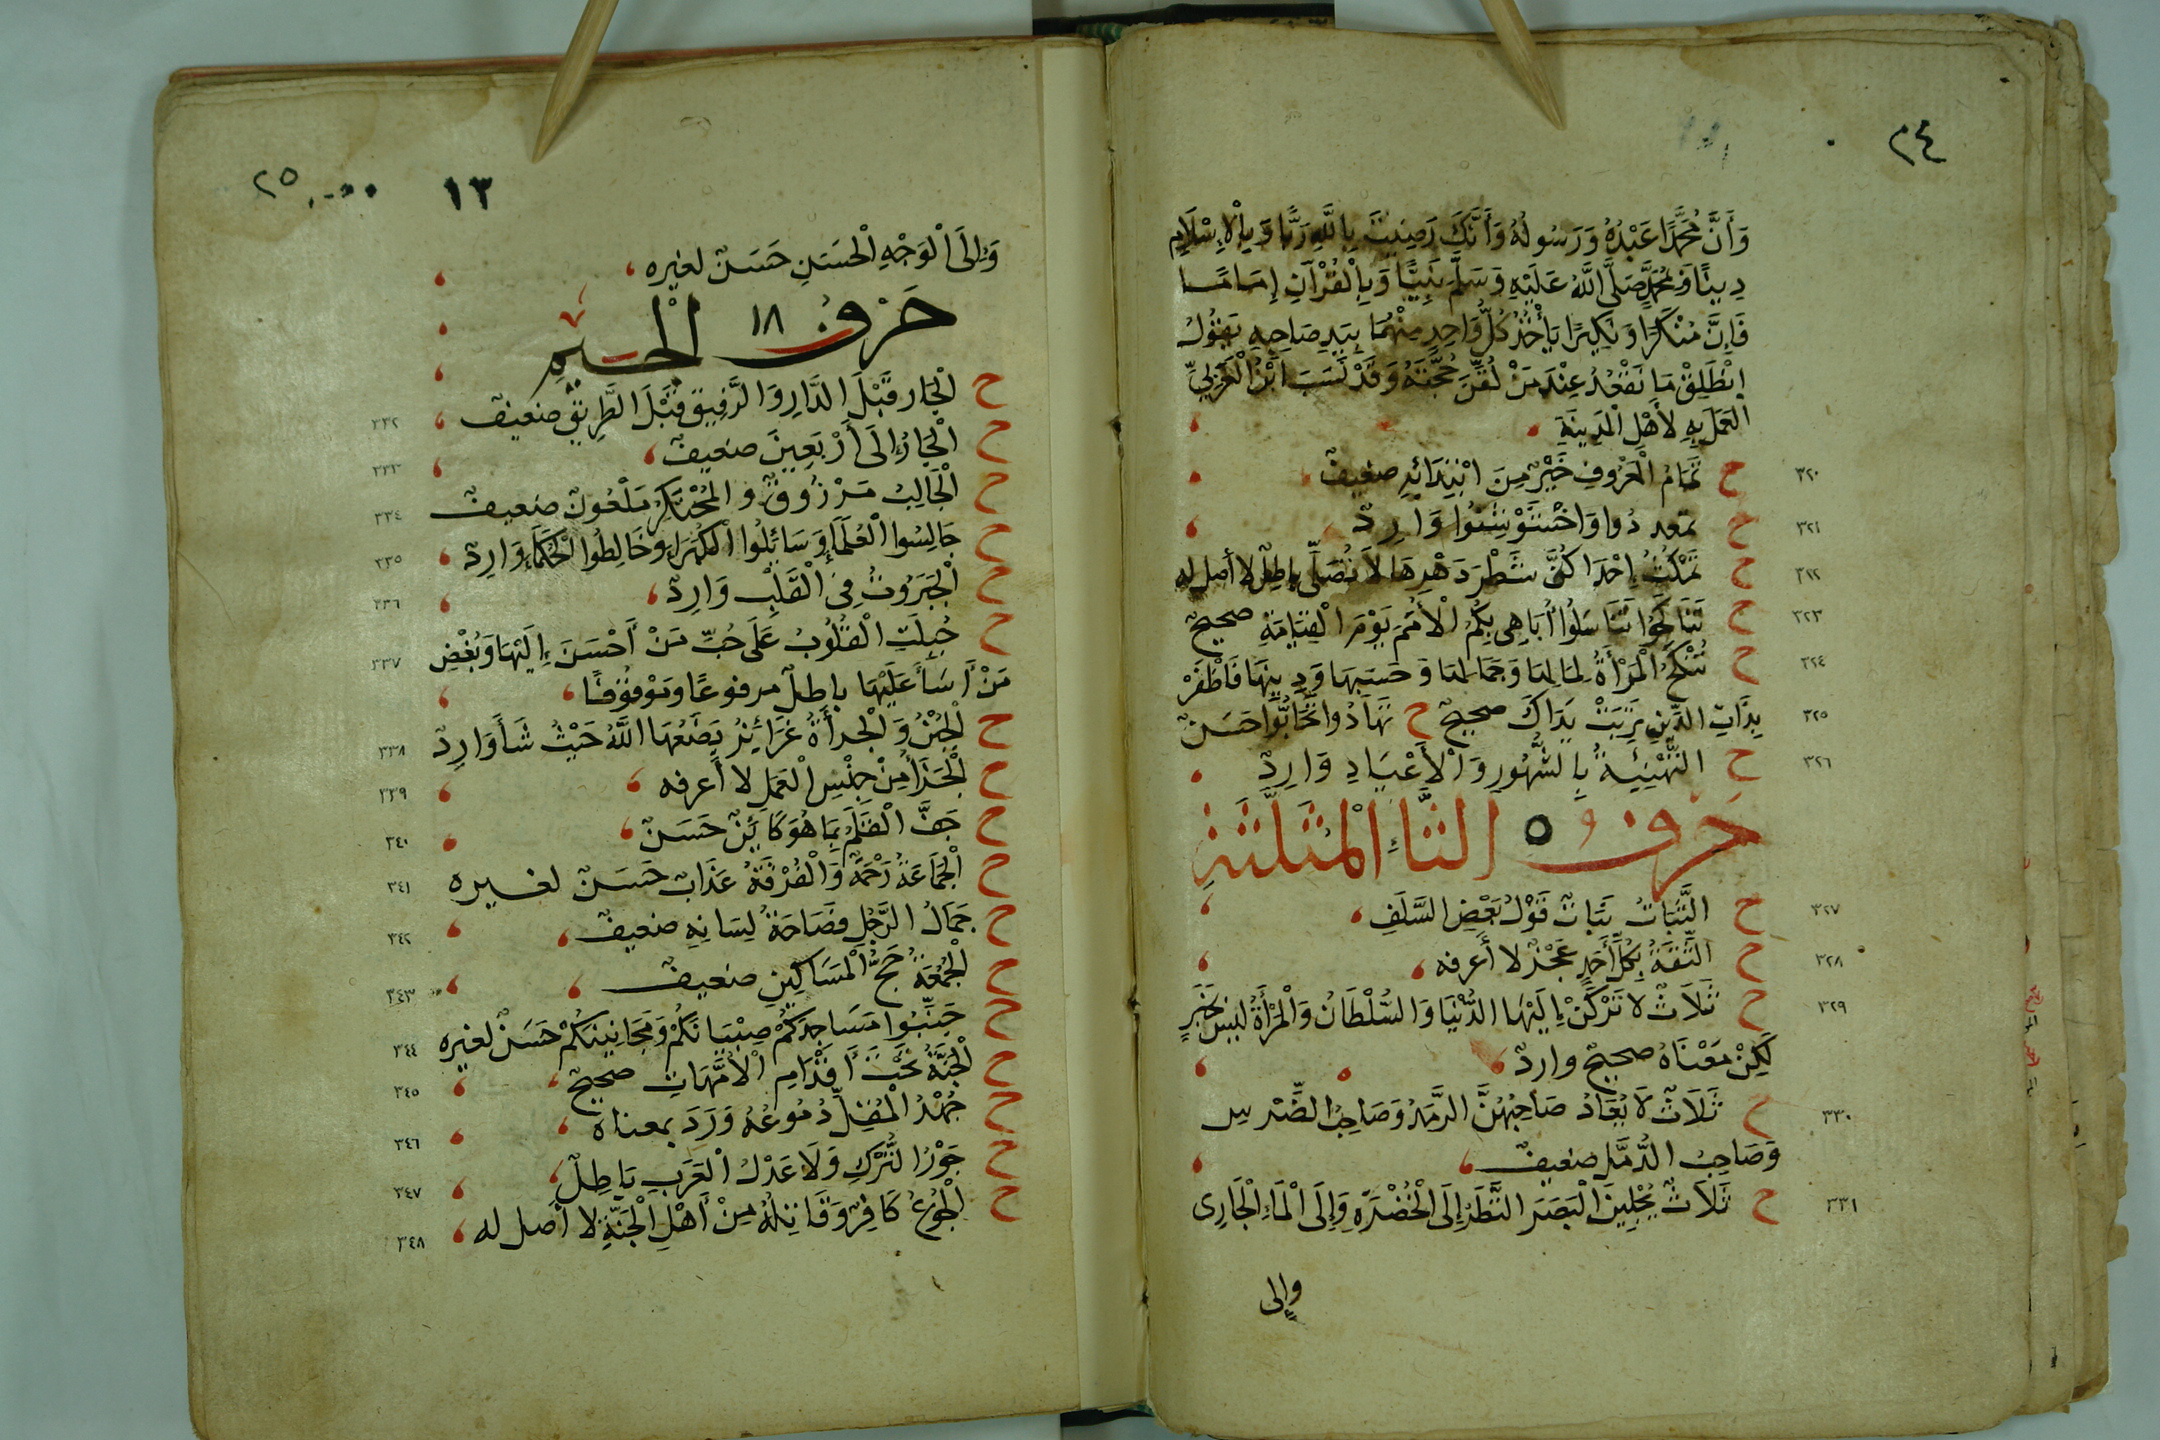 ٢٤
وَأَنَّ مُحَمَّدًا عَبْدُهُ وَرَسُولُهُ وَأَنَّكَ رَضِيتَ بِاللَّهِ رَبًّا وَبِالْإِسْلَامِ
دِينًا وَبِمُحَمَّدٍ صَلَّى اللَّهُ عَلَيْهِ وَسَلَّمَ نَبِيًّا وَبِالْقُرْآنِ إِمَامًا
فَإِنَّ مُنْكَرًا وَنَكِيرًا يَأْخُذُ كُلُّ وَاحِدٍ مِنْهُمَا بِيَدِ صَاحِبِهِ يَقُولُ
اِنْطَلِقْ مَا نَقْعُدُ عِنْدَ مَنْ لُقِّنَ حُجَّتَهُ وَقَدْ نَسَبَ ابْنُ الْعَرَبِيِّ
الْعَمَلَ بِهِ لِأَهْلِ الْمَدِينَةِ
ح تَمَامُ الْمَعْرُوفِ خَيْرٌ مِنَ ابْتِدَائِهِ ضعيفٌ ٣٢٠
ح تمعددُوا وَاخْشَوْشِنُوا وَارِدٌ ٣٢١
ح تَمْكُثُ إِحْدَاكُنَّ شَطْرَ دَهْرِهَا لَا تُصَلِّي باطلٌ لا أصل له ٣٢٢
ح تَنَاكَحُوا تَنَاسَلُوا أُبَاهِي بِكُمُ الْأُمَمَ يَوْمَ الْقِيَامَةِ صحيحٌ ٣٢٣
ح تُنْكَحُ الْمَرْأَةُ لِمَالِهَا وَجَمَالِهَا وَحَسَبِهَا وَدِينِهَا فَاظْفَرْ ٣٢٤
بِذَاتِ الدِّينِ تَرِبَتْ يَدَاكَ صحيحٌ ح تَهَادُوا تَحَابُّوا حَسَنٌ ٣٢٥
ح التَّهْنِئَةُ بِالشُّهُورِ وَالْأَعْيَادِ وَارِدٌ ٣٢٦
حَرْفُ ٥ الثَّاءِ الْمُثَلَّثَةِ
ح الثَّبَاتُ نَبَاتٌ قَوْلُ بَعْضِ السَّلَفِ ٣٢٧
ح الثِّقَةُ بِكُلِّ أَحَدٍ عَجْزٌ لا أَعرفه ٣٢٨
ح ثَلَاثٌ لا تَرْكَنْ إِلَيْهَا الدُّنْيَا وَالسُّلْطَانُ وَالْمَرْأَةُ لَيْسَ بِخَبَرٍ ٣٢٩
لَكِنْ مَعْنَاهُ صحيحٌ واردٌ
ح ثَلَاثٌ لَا يُعَادُ صَاحِبُهُنَّ الرَّمَدُ وَصَاحِبُ الضِّرْسِ ٣٣٠
وَصَاحِبُ الدُّمَّلِ ضعيفٌ
ح ثَلَاثٌ يُجْلِينَ الْبَصَرَ النَّظَرُ إِلَى الْخُضْرَةِ وَإِلَى الْمَاءِ الْجَارِي ٣٣١
وإلى
٢٥
١٣
وَإِلَى الْوَجْهِ الْحَسَنِ حَسَنٌ لغيره
حَرْفُ ١٨ الْجِيمِ
ح الْجَارَ قَبْلَ الدَّارِ وَالرَّفِيقَ قَبْلَ الطَّرِيقِ ضعيفٌ ٣٣٢
ح الْجَارُ إِلَى أَرْبَعِينَ ضعيفٌ ٣٣٣
ح الْجَالِبُ مَرْزُوقٌ وَالْمُحْتَكِرُ مَلْعُونٌ ضعيفٌ ٣٣٤
ح جَالِسُوا الْعُلَمَاءَ وَسَائِلُوا الْكُبَرَاءَ وَخَالِطُوا الْحُكَمَاءَ وَارِدٌ ٣٣٥
ح الْجَبَرُوتُ فِي الْقَلْبِ وَارِدٌ ٣٣٦
ح جُبِلَتِ الْقُلُوبُ عَلَى حُبِّ مَنْ أَحْسَنَ إِلَيْهَا وَبُغْضِ ٣٣٧
مَنْ أَسَاءَ عَلَيْهَا باطلٌ مرفوعًا وَمَوْقُوفًا
ح الْجُبْنُ وَالْجُرأَةُ غَرَائِزُ يَضَعُهَا اللَّهُ حَيْثُ شَاءَ وَارِدٌ ٣٣٨
ح الْجَزَاءُ مِنْ جِنْسِ الْعَمَلِ لا أَعرفه ٣٣٩
ح جَفَّ الْقَلَمُ بِمَا هُوَ كَائِنٌ حَسَنٌ ٣٤٠
ح الْجَمَاعَةُ رَحْمَةٌ وَالْفُرْقَةُ عَذَابٌ حَسَنٌ لغيره ٣٤١
ح جَمَالُ الرَّجُلِ فَصَاحَةُ لِسَانِهِ ضعيفٌ ٣٤٢
ح الْجُمُعَةُ حَجُّ الْمَسَاكِينِ ضعيفٌ ٣٤٣
ح جَنِّبُوا مَسَاجِدَكُمْ صِبْيَانَكُمْ وَمَجَانِينَكُمْ حَسَنٌ لغيره ٣٤٤
ح الْجَنَّةُ تَحْتَ أَقْدَامِ الْأُمَّهَاتِ صحيحٌ ٣٤٥
ح جُهْدُ الْمُقِلِّ دُمُوعُهُ وَرَدَ بمعناه ٣٤٦
ح جَوْرُ التُّرْكِ وَلَا عَدْلُ الْعَرَبِ بَاطِلٌ ٣٤٧
ح الْجُوعُ كَافِرٌ وَقَاتِلُهُ مِنْ أَهْلِ الْجَنَّةِ لا أَصل له ٣٤٨